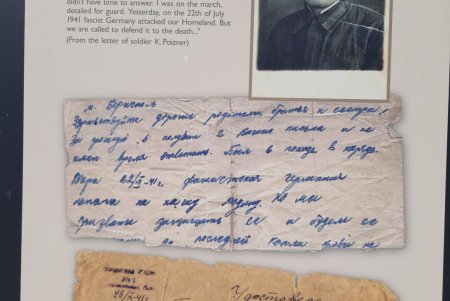 didn't have time to answer. I was on the march,
detailed for guard. Yesterday, on the 22th of July
1941 fascist Germany attacked our Homeland. But
we are called to defend it to the death..."
(From the letter of soldier K. Poizner)
м. Борисполь
Здравствуйте дорогие родители, братья и сестры!
За я получил 2 Ваших письма и не
имел время ответить. Был в походе, в наряде.
Вчера 22/ -41г. фашистская германия
напала на нашу Родину. Но мы
призваны защищать ее и будем ее
до последней капли крови не